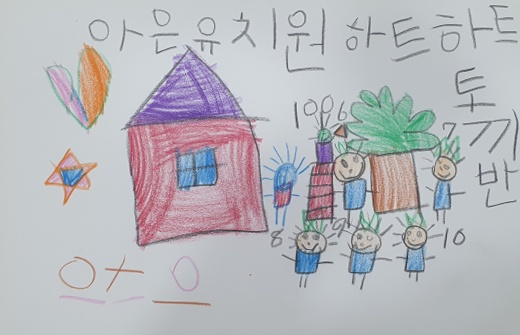 아은유치원 하트하트
토끼반
100 6
7
8 9 10
0+0